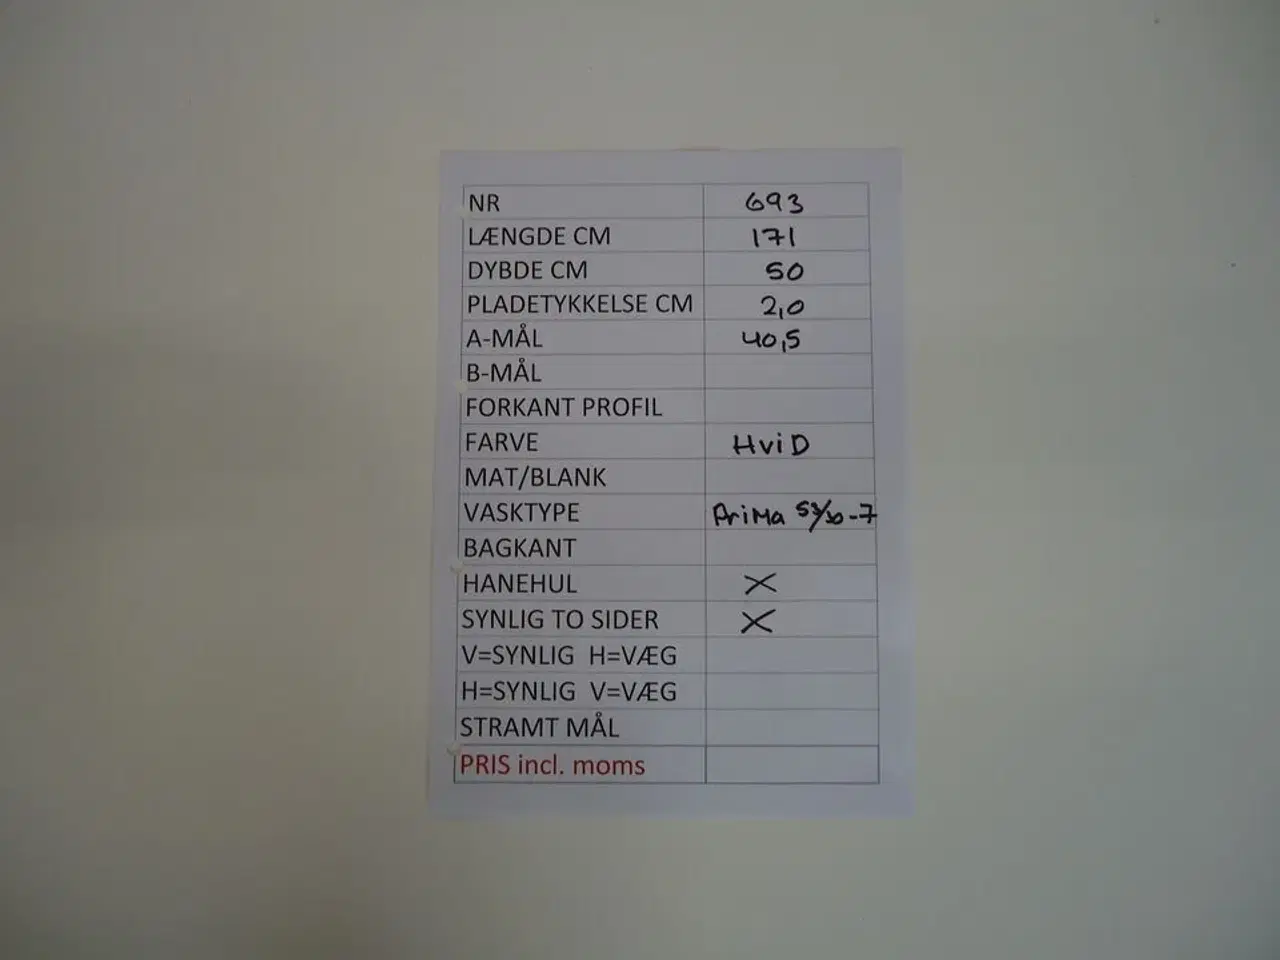 NR 693
LÆNGDE CM 171
DYBDE CM 50
PLADETYKKELSE CM 2,0
A-MÅL 40,5
B-MÅL
FORKANT PROFIL
FARVE HviD
MAT/BLANK
VASKTYPE PriMa 53/30-7
BAGKANT
HANEHUL X
SYNLIG TO SIDER X
V=SYNLIG H=VÆG
H=SYNLIG V=VÆG
STRAMT MÅL
PRIS incl. moms